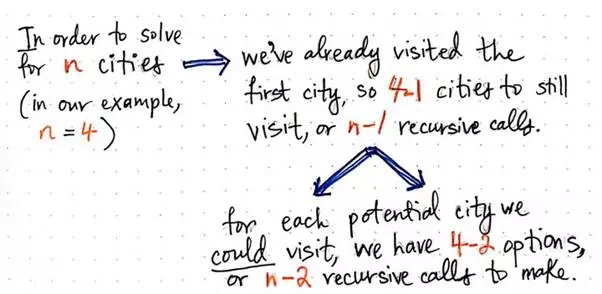 In order to solve
for n cities
(in our example,
n = 4)
we've already visited the
first city, so 4-1 cities to still
visit, or n-1 recursive calls.
for each potential city we
could visit, we have 4-2 options,
or n-2 recursive calls to make.